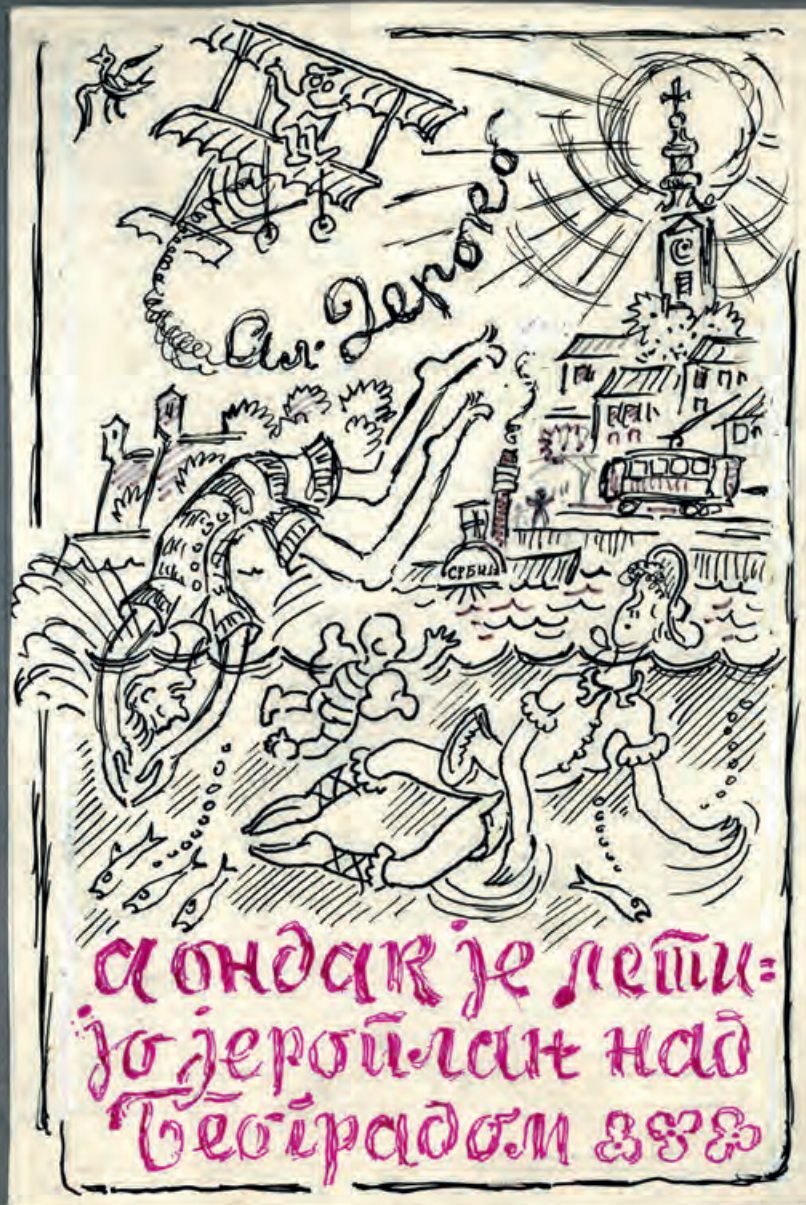 Ал. Дероко
СРБИЈА
а ондак је лети=
јо јероплан над
Београдом